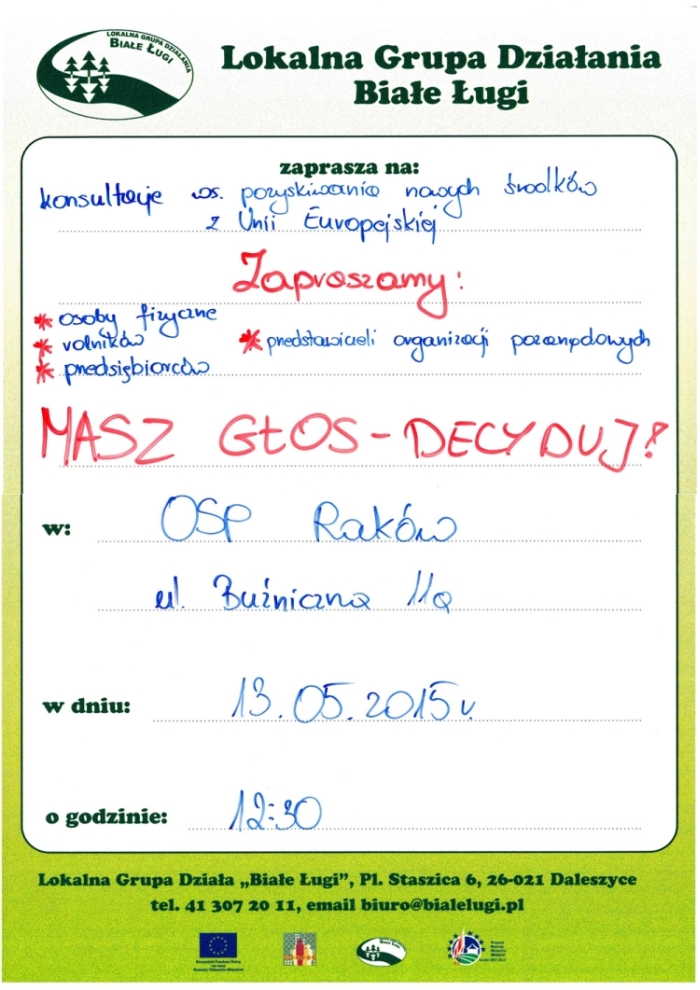 LOKALNA GRUPA DZIAŁANIA
BIAŁE ŁUGI
Lokalna Grupa Działania
Białe Ługi
zaprasza na:
konsultacje ws. pozyskiwania nowych środków
z Unii Europejskiej
Zapraszamy:
* osoby fizyczne
* rolników
* przedstawicieli organizacji pozarządowych
* przedsiębiorców
MASZ GŁOS - DECYDUJ!
w: OSP Raków
ul. Bużniczna 11a
w dniu: 13.05.2015 r.
o godzinie: 12:30
Lokalna Grupa Działa „Białe Ługi”, Pl. Staszica 6, 26-021 Daleszyce
tel. 41 307 20 11, email biuro@bialelugi.pl